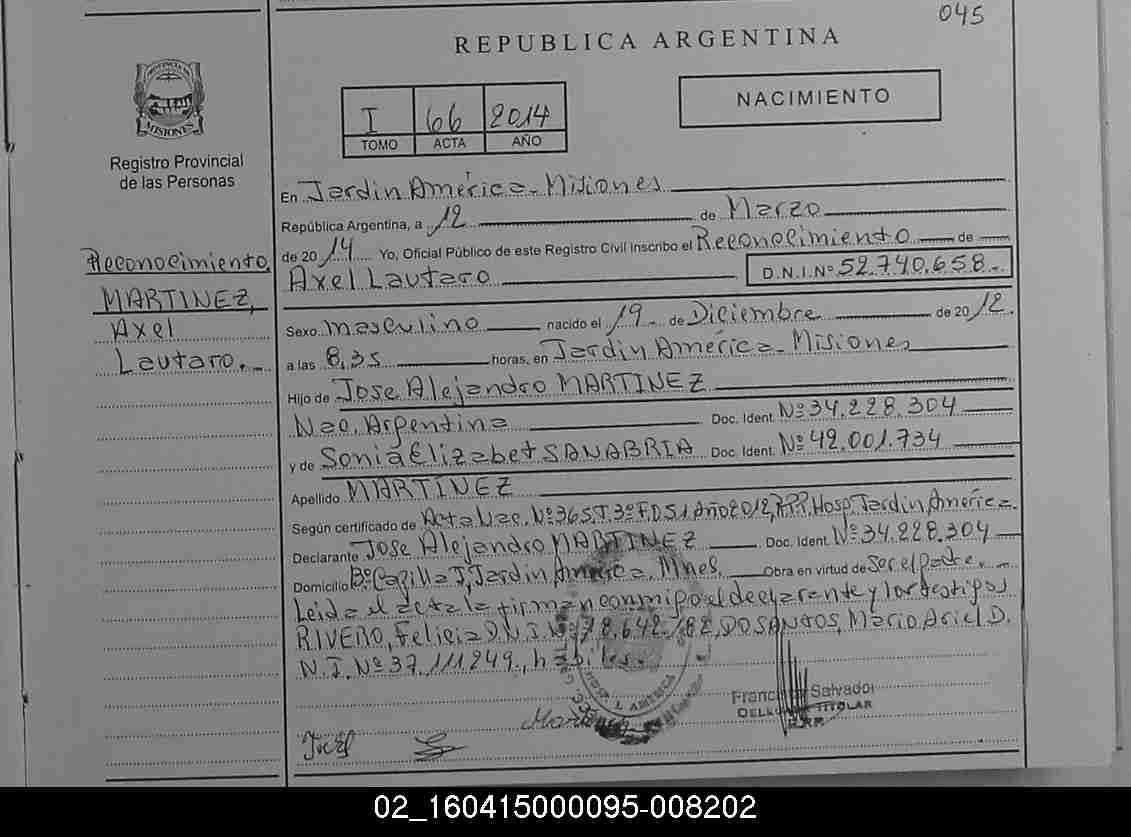 045
REPUBLICA ARGENTINA
PROVINCIA DE
MISIONES
Registro Provincial
de las Personas
I 66 2014
TOMO ACTA AÑO
NACIMIENTO
Reconocimiento
MARTINEZ,
Axel
Lautaro.
En Jardin América - Misiones
República Argentina, a 12 de Marzo
de 2014 Yo, Oficial Público de este Registro Civil inscribo el Reconocimiento de
Axel Lautaro D.N.I.Nº 52.740.658.-
Sexo masculino nacido el 19 de Diciembre de 2012.
a las 8,35 horas, en Jardin América - Misiones
Hijo de Jose Alejandro MARTINEZ
Nac. Argentina Doc. Ident. Nº 34.228.304
y de Sonia Elizabet SANABRIA Doc. Ident. Nº 42.001.734
Apellido MARTINEZ
Según certificado de Acta Nac. Nº 365, T.3º F.DS1 Año 2012, R.P.P. Hosp. Jardin América.
Declarante Jose Alejandro MARTINEZ Doc. Ident. Nº 34.228.304
Domicilio Bº Mnes. Obra en virtud de Ser el Padre.
Leida el acta la firman conmigo el declarante y los testigos
RIVERO, Felicia D.N.I. Nº DOSANTOS, Mario Ariel D.
N.I. Nº 37.111.249., habiles.
J. AMERICA
Salvador
TITULAR
02_160415000095-008202